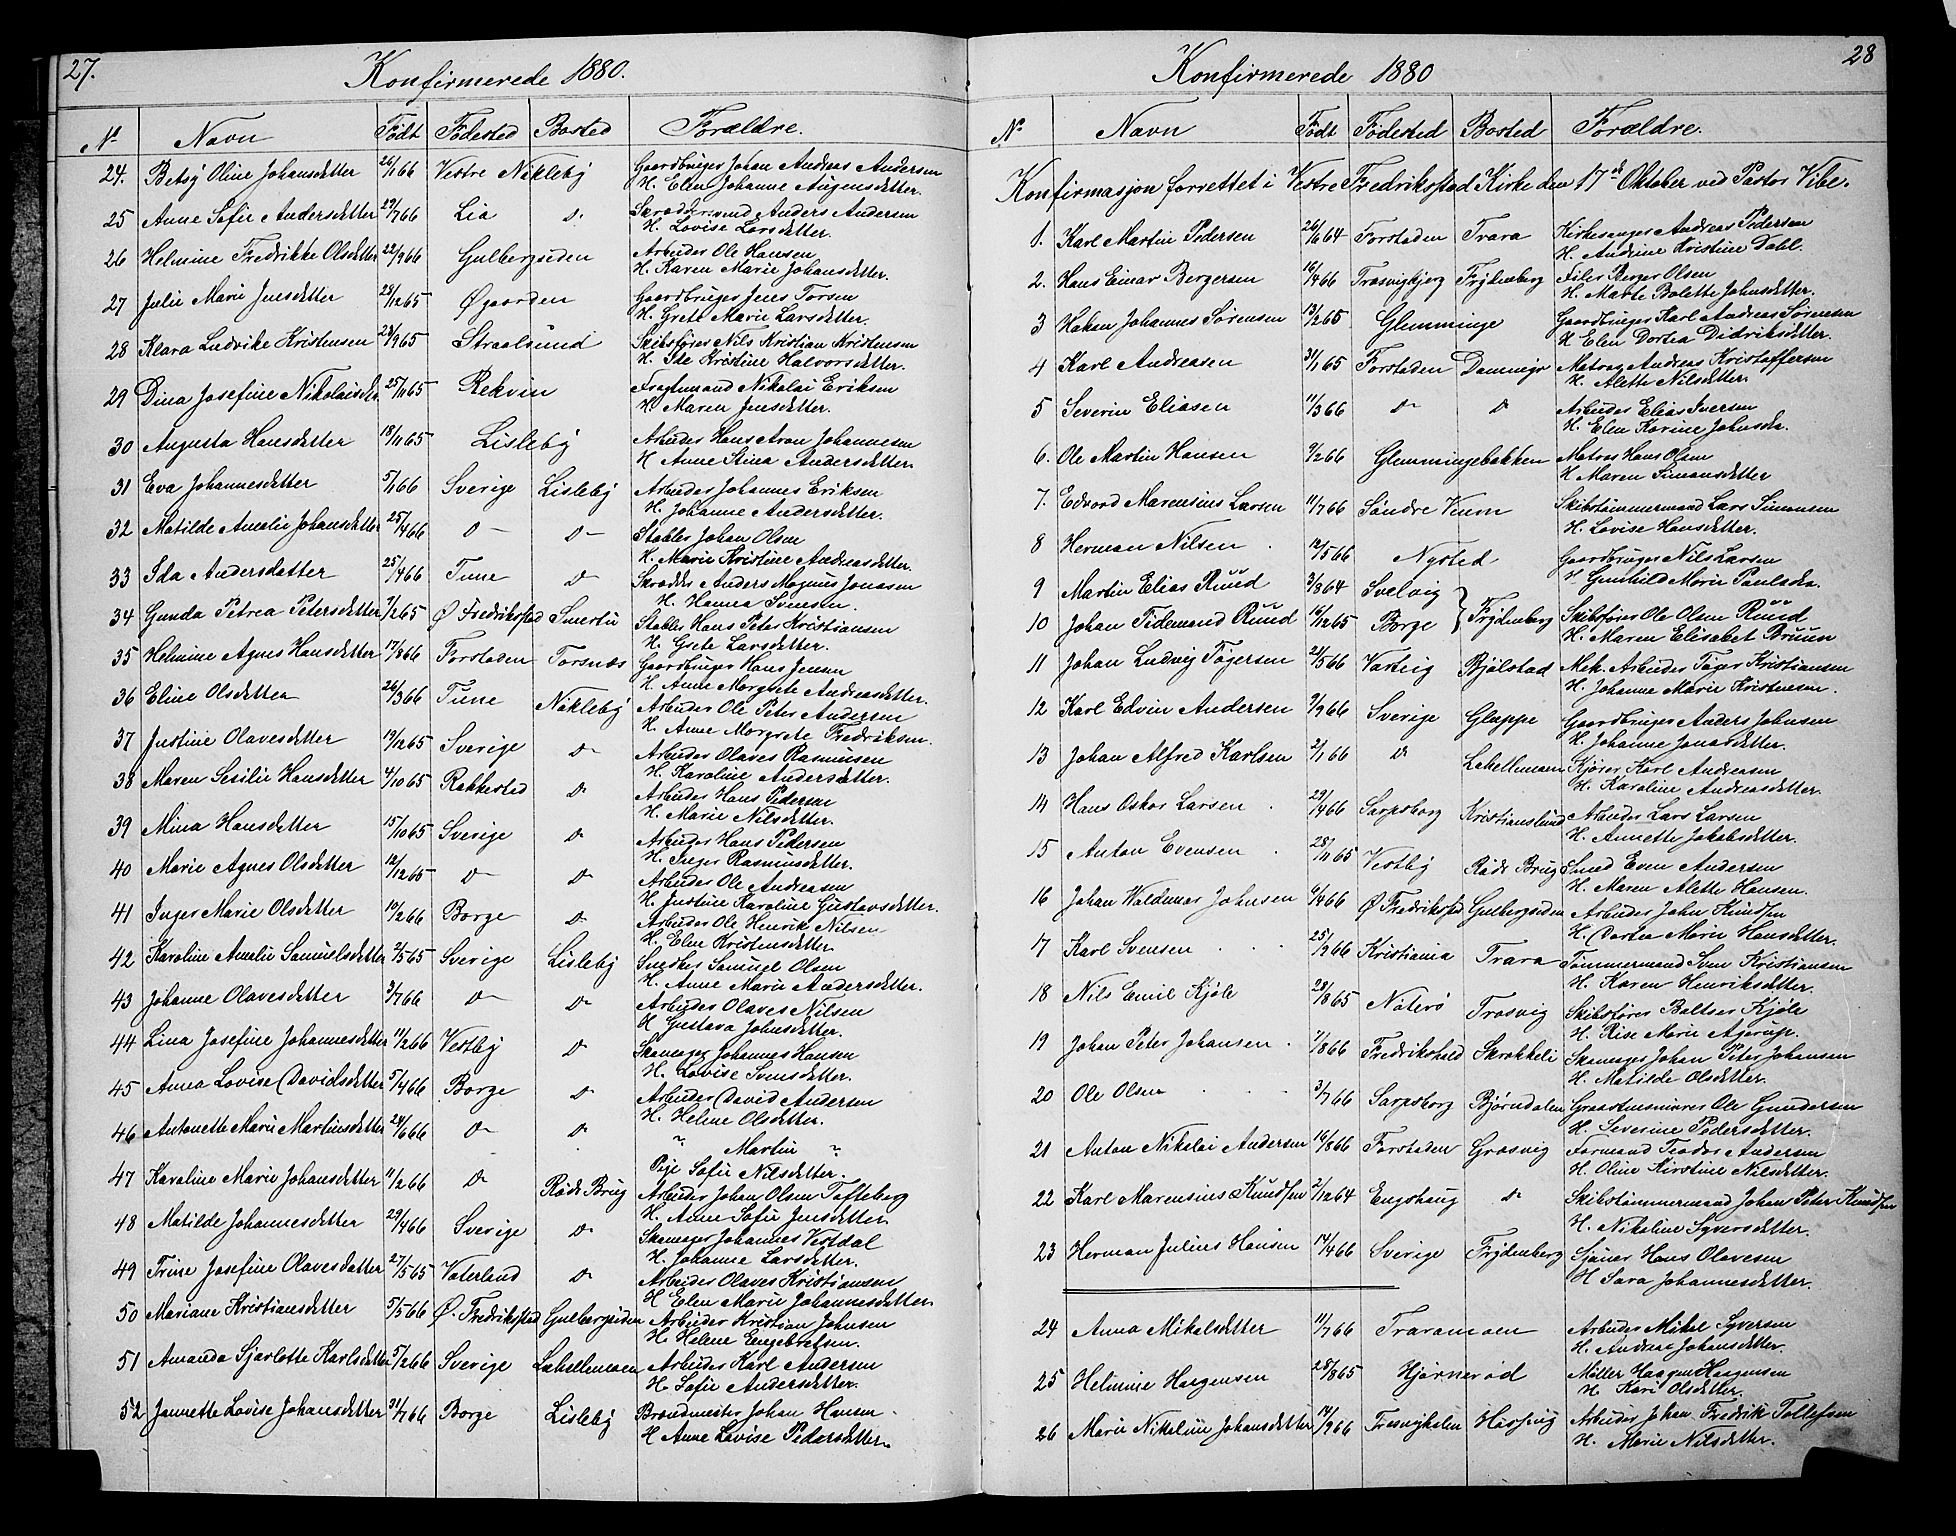 27.
Konfirmerede 1880.
No Navn Født Fødested Bosted Forældre.
24. Betsy Oline Johansdetter 26/1 66 Vestre Nökleby Gaardbruger Johan Andreas Andersen
H. Elen Johanne Augensdetter.
25 Anne Sofie Andersdetter 29/7 66 Lia do Anders Andersen
H. Lovise Larsdetter.
26 Helmine Fredrikke Olsdetter 22/9 66 Gulbergsiden Arbeider Ole Hansen
H. Karen Marie Johansdetter.
27 Julie Marie Jensdetter 25/12 65 Øgaarden Gaardbruger Jens Torsen
H. Grete Marie Larsdetter.
28 Klara Ludvike Kristensen 29/9 65 Straalsund Skibsfører Nils Kristian Kristensen
H. Ide Kristine Halvorsdetter.
29 Dina Josefine Nikolaisd. 25/11 65 Rekvin Fragtmand Nikolai Eriksen
H. Maren Jensdetter.
30 Augusta Hansdetter 18/11 65 Lisleby Arbeider Hans Aron Johannesen
H Anne Stina Andersdetter.
31 Eva Johannesdetter 5/1 66 Sverige Lisleby Arbeider Johannes Eriksen
H. Johanne Andersdetter.
32 Matilde Amalie Johansdetter 25/4 66 do do Stabler Johan Olsen
H. Marie Kristine Andreasdetter.
33 Ida Andersdatter 25/4 66 Tune do Skrædder Anders Magnus Jonasen
H. Hanna Svensen.
34 Gunda Petrea Petersdetter 7/2 65 Ø Fredrikstad Smertu Stabler Hans Peter Kristiansen
H. Grete Larsdetter.
35 Helmine Agnes Hansdetter 17/8 66 Forstaden Torsnæs Gaardbruger Hans Jensen
H. Anne Morgrete Andreasdetter.
36 Eline Olsdetter 26/3 66 Tune Nökleby Arbeider Ole Peter Andersen
H. Anne Morgrete Fredriksen.
37 Justine Olavesdetter 19/12 65 Sverige do Arbeider Olaves Rasmusen
H. Karoline Andersdetter.
38 Maren Sesilie Hansdetter 4/10 65 Rakkestad do Arbeider Hans Pedersen
H. Marie Nilsdetter.
39 Mina Hansdetter 15/10 65 Sverige do Arbeider Hans Pedersen
H. Inger Rasmusdetter.
40 Marie Agnes Olsdetter 12/12 65 do do Arbeider Ole Andreasen
H. Justine Karoline Gustavsdetter.
41 Inger Marie Olsdetter 10/2 66 Borge do Arbeider Ole Henrik Nilsen
H. Elen Kristensdetter
42 Karoline Amelie Samuelsdetter 2/5 65 Sverige Lisleby Snedker Samuel Olsen
H. Anne Marie Andersdetter.
43 Johanne Olavesdetter 3/7 66 do do Arbeider Olaves Nilsen
H Gustava Johnsdetter.
44 Lina Josefine Johannesdetter 11/2 66 Vestby do Skomager Johannes Hansen
H. Lovise Svensdetter.
45 Anna Lovise Davidsdetter 5/4 66 Borge do Arbeider David Andersen
H. Helene Olsdetter.
46 Antonette Marie Martinsdetter 24/6 66 do do " Martin "
Pige Sofie Nilsdetter.
47 Karoline Marie Johansdetter 11/2 66 do Røde Brug Arbeider Johan Olsen Tofteberg
H. Anne Sofie Jensdetter
48 Matilde Johannesdetter 29/4 66 Sverige do Skomager Johannes Vestdal
H. Johanne Larsdetter.
49 Trine Josefine Olavesdatter 27/5 65 Vaterland do Arbeider Olaves Kristiansen
H Elen Marie Johannesdetter.
50 Mariane Kristiansdetter 5/5 66 Ø. Fredrikstad Gulbergsiden Arbeider Kristian Johnsen
H. Helene Engebretsen.
51 Amanda Sjarlotte Karlsdetter 5/2 66 Sverige Labellemoen Arbeider Karl Andersen
H. Sofie Andersdetter.
52 Jannette Lovise Johansdetter 31/7 66 Borge Lisleby Brandmester Johan Hansen
H Anne Lovise Pedersdetter.
28
Konfirmerede 1880
No Navn Født Fødested Bosted Forældre.
Konfirmasjon forrettet i Vestre Fredrikstad Kirke den 17de Oktober ved Pastor Vibe.
1. Karl Martin Pedersen 26/6 64 Forstaden Trara Kirkesanger Andreas Pedersen
H. Andrine Kristine Dahl.
2. Hans Einar Bergersen 16/4 66 Trosvigbjerg Frydenberg Filer Berger Olsen
H. Marte Bolette Johnsdetter.
3 Haken Johannes Sørensen 13/2 65 Glemminge Gaardbruger Karl Andreas Sørensen
H Elen Dortea Didriksdetter.
4 Karl Andreasen 31/1 65 Forstaden Damminge Matros Andreas Kristoffersen
H. Alette Nilsdetter
5 Severin Eliasen 11/3 66 do do Arbeider Elias Iversen
H. Elen Karine Johnsda.
6. Ole Martin Hansen 9/2 66 Glemmingebakken Matros Hans Olsen
H Maren Simansdetter
7. Edvard Marensius Larsen 11/7 66 Søndre Veum Skibstømmermand Lars Simonsen
H. Lovise Hansdetter.
8 Herman Nilsen 12/5 66 Nysted Gaardbruger Nils Larsen
H Gunhild Marie Paulsda.
9 Martin Elias Ruud 3/8 64 Svelvig
10 Johan Tidemand Ruud 16/12 65 Borge } Frydenberg Skibsfører Ole Olsen Ruud
H. Maren Elisabet Bruun
11 Johan Ludvig Tøgersen 21/5 66 Varteig Bjølstad Mek. Arbeider Tøger Kristiansen
H. Johanne Marie Kristensen.
12 Karl Edvin Andersen 9/9 66 Sverige Gluppe Gaardbruger Anders Johnsen
H. Johanne Jonasdetter.
13 Johan Alfred Karlsen 2/1 66 do Labellemoen Kjører Karl Andreasen
H. Karoline Andreasdetter.
14 Hans Oskar Larsen 29/4 66 Sarpsborg Kristianslund Arbeider Lars Larsen
H. Annette Jakobsdetter.
15 Anton Evensen 28/11 65 Vestby Røde Brug Smed Even Andersen
H. Maren Alette Hansen.
16 Johan Waldemar Johnsen 9/4 66 Ø Fredrikstad Gulbergsiden Arbeider John Knudsen
H. Dortea Marie Hansdetter.
17 Karl Svensen 25/2 66 Kristiania Trara Tømmermand Sven Kristiansen
H. Karen Henriksdetter.
18 Nils Emil Kjøle 28/8 65 Nøterø Trosvig Skibsfører Baltser Kjøle
H. Rise Marie Ajerup.
19 Johan Peter Johansen 7/8 66 Fredrikshald Skrokkeli Skomager Johan Peter Johansen
H. Matilde Olsdetter.
20 Ole Olsen 3/7 66 Sarpsborg Bjørndalen Graastensminerer Ole Gundersen
H. Severine Pedersdetter.
21 Anton Nikolai Andersen 16/8 66 Forstaden Grosvig Formand Teodor Andersen
H. Oline Kirstine Nilsdetter.
22 Karl Marensius Knudsen 2/12 64 Engehaug do Skibstømmermand Johan Peter Knudsen
H. Nikoline Syversdetter.
23 Herman Julius Hansen 14/4 66 Sverige Frydenberg Sjømand Hans Olavesen
H Sara Johannesdetter.
24 Anna Mikalsdetter 11/7 66 Traramoen Arbeider Mikal Syversen
H. Andrea Johansdetter.
25 Helmine Haagensen 28/8 65 Hjørnerød Møller Haagen Haagensen
H Kari Olsdetter.
26 Marie Nikoline Johansdetter 14/9 66 Trosvikhalen Hassing Arbeider Johan Fredrik Tollefsen
H. Marie Nilsdetter.